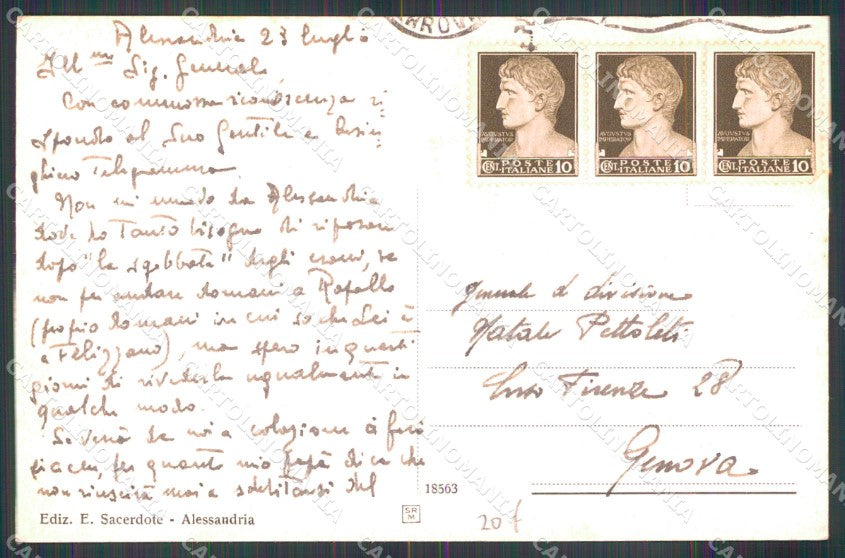 Alessandria 23 luglio
Ill.mo Sig. Generale,
Con commossa riconoscenza ri
spondo al Suo Gentile e lusin
ghiero Telegramma.
Non mi muovo da Alessandria
dove ho Tanto bisogno di riposare
dopo "la sgobbata" degli esami, se
non per andare domani a Rapallo
(proprio domani in cui so che Lei è
a Felizzano), ma spero in questi
giorni di rivederla ugualmente in
qualche modo.
Se verrà da noi a colazione ci farà
piacere, per quanto mio papà dica che
non riuscirà mai a sdebitarsi del
Ediz. E. Sacerdote - Alessandria
18563
SR
M
20 f
AVGVSTVS
IMPERATOR
CENT. POSTE ITALIANE 10
AVGVSTVS
IMPERATOR
CENT. POSTE ITALIANE 10
AVGVSTVS
IMPERATOR
CENT. POSTE ITALIANE 10
Generale di divisione
Natale Pettoleti
Corso Firenze 28
Genova
CARTOLINOMANIA